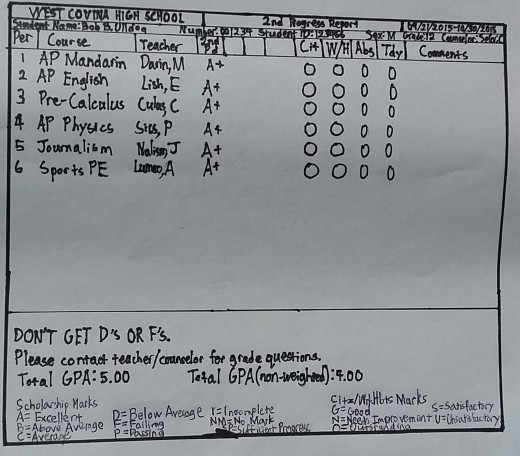 WEST COVINA HIGH SCHOOL 2nd Progress Report 09/21/2015-10/30/2015
Student Name: Bob B. Number: 001234 Student ID: Sex: M Grade: 12 Counselor:
Per Course Teacher Cit W/H Abs Tdy Comments
1 AP Mandarin Darin, M A+ O O 0 0
2 AP English Lish, E A+ O O 0 0
3 Pre-Calculus Culus, C A+ O O 0 0
4 AP Physics Sics, P A+ O O 0 0
5 Journalism Nalism, J A+ O O 0 0
6 Sports PE A A+ O O 0 0
DON'T GET D's OR F's.
Please contact teacher/counselor for grade questions.
Total GPA: 5.00 Total GPA (non-weighted): 4.00
Scholarship Marks Marks
A= Excellent D= Below Average I= Incomplete G= Good S= Satisfactory
B= Above Average F= Failing NM= No Mark N= Needs Improvement U= Unsatisfactory
C= Average P= Passing SP= Sufficient Progress O= Outstanding